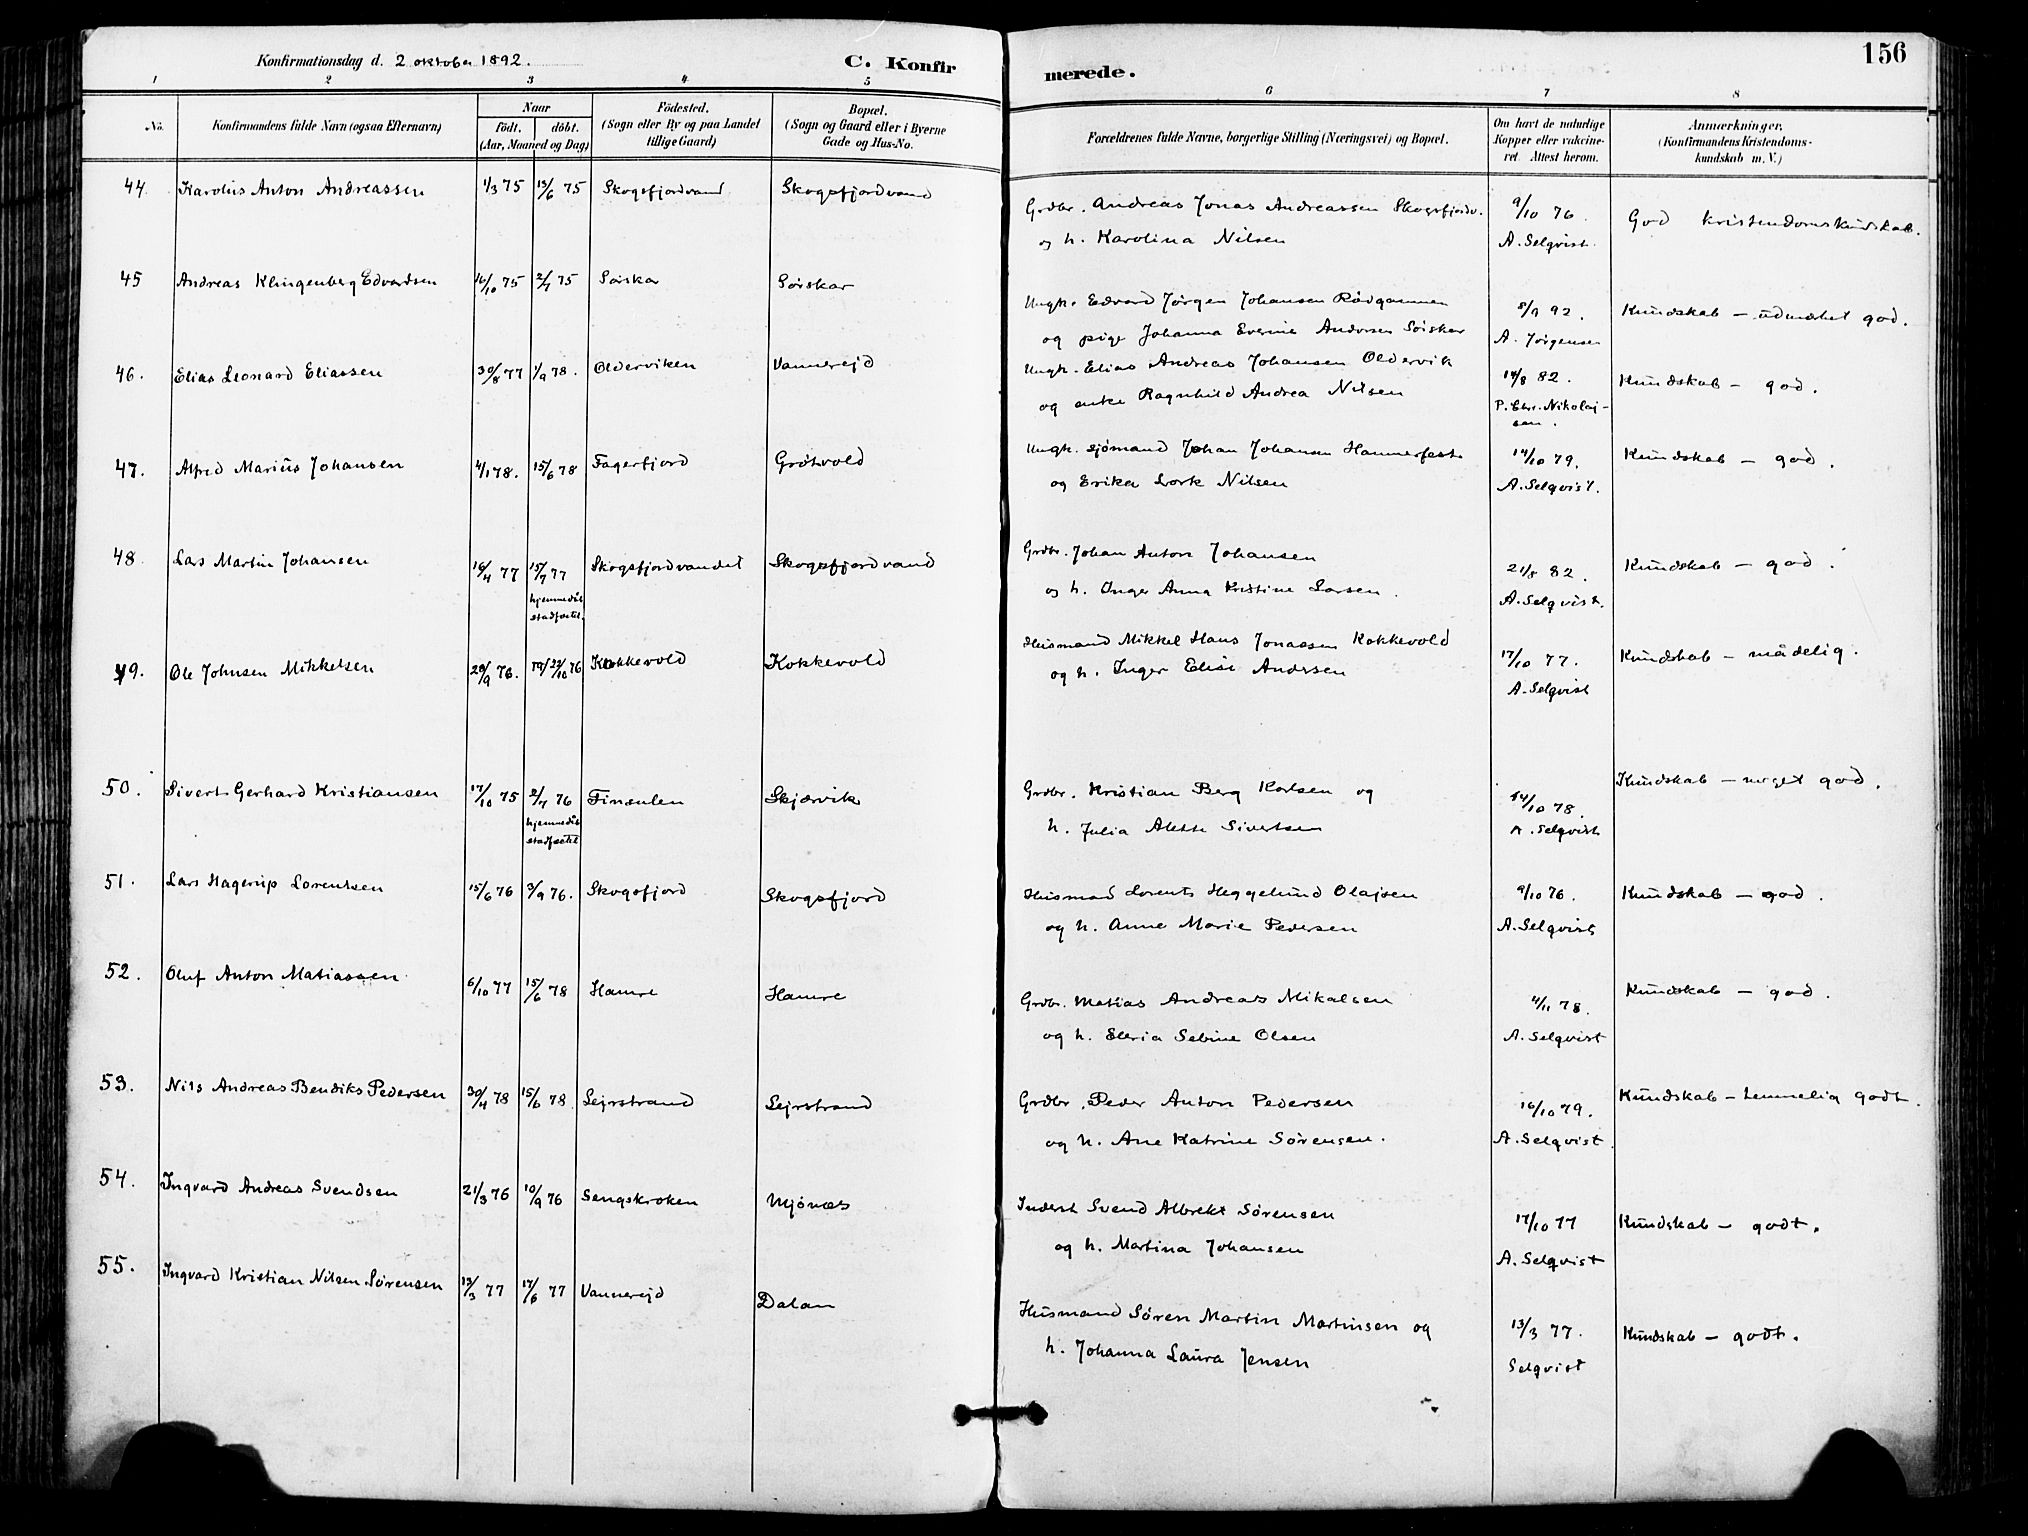 Konfirmationsdag d. 2 oktober 1892.
C. Konfirmerede.
156
1 2 3 4 5 6 7 8
No.
Konfirmandens fulde Navn (ogsaa Efternavn)
Naar
født. døbt.
(Aar, Maaned og Dag)
Fødested.
(Sogn eller By og paa Landet
tillige Gaard)
Bopæl.
(Sogn og Gaard eller i Byerne
Gade og Hus-No.
Forældrenes fulde Navne, borgerlige Stilling (Næringsvei) og Bopæl.
Om havt de naturlige
Kopper eller vakcine-
ret. Attest herom.
Anmærkninger,
(Konfirmandens Kristendoms-
kundskab m. V.)
44. Karolus Anton Andreassen 1/3 75 13/6 75 Skogsfjordvand Skogsfjordvand
Grdbr. Andreas Jonas Andreassen Skogsfjordv. 9/10 76. God kristendomskundskab.
og h. Karolina Nilsen A. Selqvist
45 Andreas Klingenberg Edvardsen 16/10 75 2/7 75 Sørskar Sørskar
Ungk. Edvard Jørgen Johansen Rødgammen 8/9 92. Kundskab - udmærket god.
og pige Johanna Everine Andersen Sørskar A. Jørgensen
46. Elias Leonard Eliassen 30/8 77 1/9 78. Olderviken Vannerejd
Ungk. Elias Andreas Johansen Oldervik 14/8 82. Kundskab - god.
og enke Ragnhild Andrea Nilsen P. Chr. Nikolaj-
sen.
47. Alfred Marius Johansen 4/1 78. 15/6 78 Fagerfjord Grøtvold
Ungk. sjømand Johan Johansen Hammerfest 14/10 79. Kundskab - god.
og Erika Lork Nilsen A. Selqvist.
48. Lars Martin Johansen 16/4 77 15/7 77 Skogsfjordvandet Skogsfjordvand
hjemmedåb
stadfæstet.
Grdbr. Johan Anton Johansen 21/8 82. Kundskab - god.
og h. Inger Anna Kristine Larsen. A. Selqvist.
49. Ole Johnsen Mikkelsen 29/9 76. 22/10 76 Kokkevold Kokkevold
Husmand Mikkel Hans Jonassen Kokkevold 17/10 77. Kundskab - mådelig.
og h. Inger Elise Andersen A. Selqvist
50. Sivert Gerhard Kristiansen 17/10 75 2/7 76 Finnulen Skjærvik
hjemmedåb
stadfæstet
Grdbr. Kristian Berg Karlsen og 14/10 78. Kundskab - meget god.
h. Julia Alette Sivertsen A. Selqvist
51. Lars Hagerup Lorentsen 15/6 76 3/9 76. Skogsfjord Skogsfjord
Husmad Lorents Heggelund Olajsen 9/10 76. Kundskab - god.
og h. Anne Marie Pedersen A. Selqvist
52. Oluf Anton Matiassen 6/10 77 15/6 78 Hamre Hamre
Grdbr. Matias Andreas Mikalsen 4/11 78. Kundskab - god.
og h. Eleria Sebine Olsen A. Selqvist
53. Nils Andreas Bendiks Pedersen 30/4 78 15/6 78. Lejrstrand Lejrstrand
Grdbr. Peder Anton Pedersen 16/10 79. Kundskab - temmelig godt.
og h. Ane Katrine Sørensen. A. Selqvist.
54. Ingvard Andreas Svendsen 21/3 76 10/9 76 Sengskroken Mjønæs
Inderst Svend Albrekt Sørensen 17/10 77 Kundskab - godt.
og h. Martina Johansen A. Selqvist
55. Ingvard Kristian Nilsen Sørensen 13/3 77 17/6 77 Vannerejd Dalan
Husmand Søren Martin Martinsen og 13/3 77. Kundskab - godt.
h. Johanna Laura Jensen Selqvist